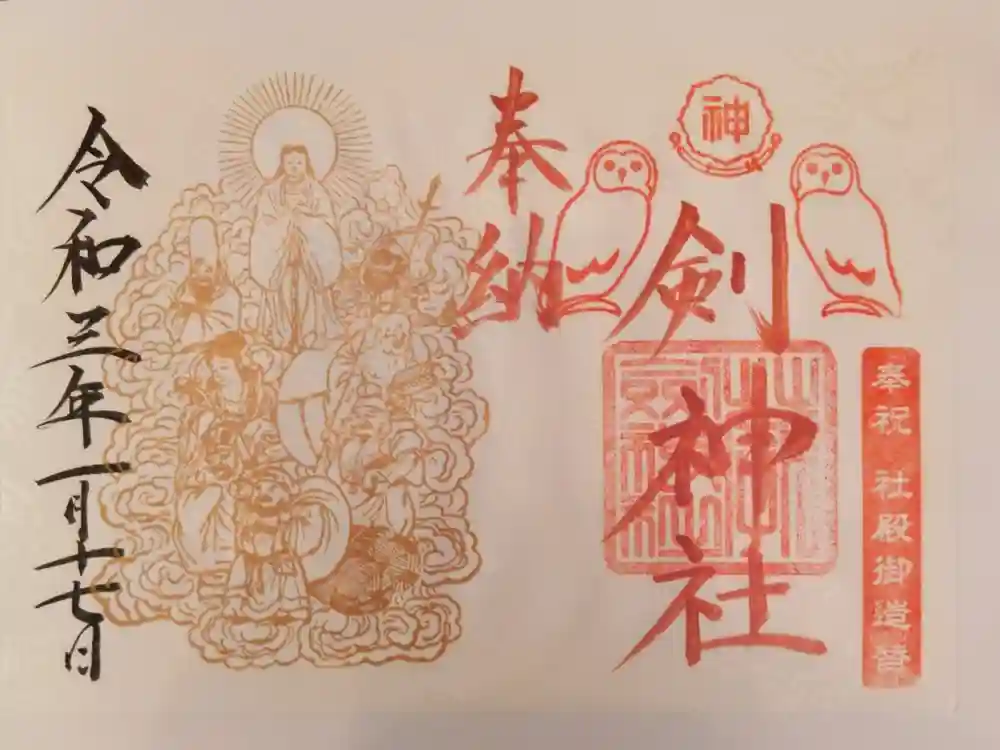 奉祝 社殿御造替
神
剣神社
奉納
令和三年一月十七日